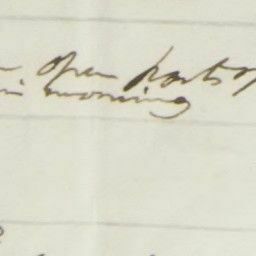 open parts of
in morning